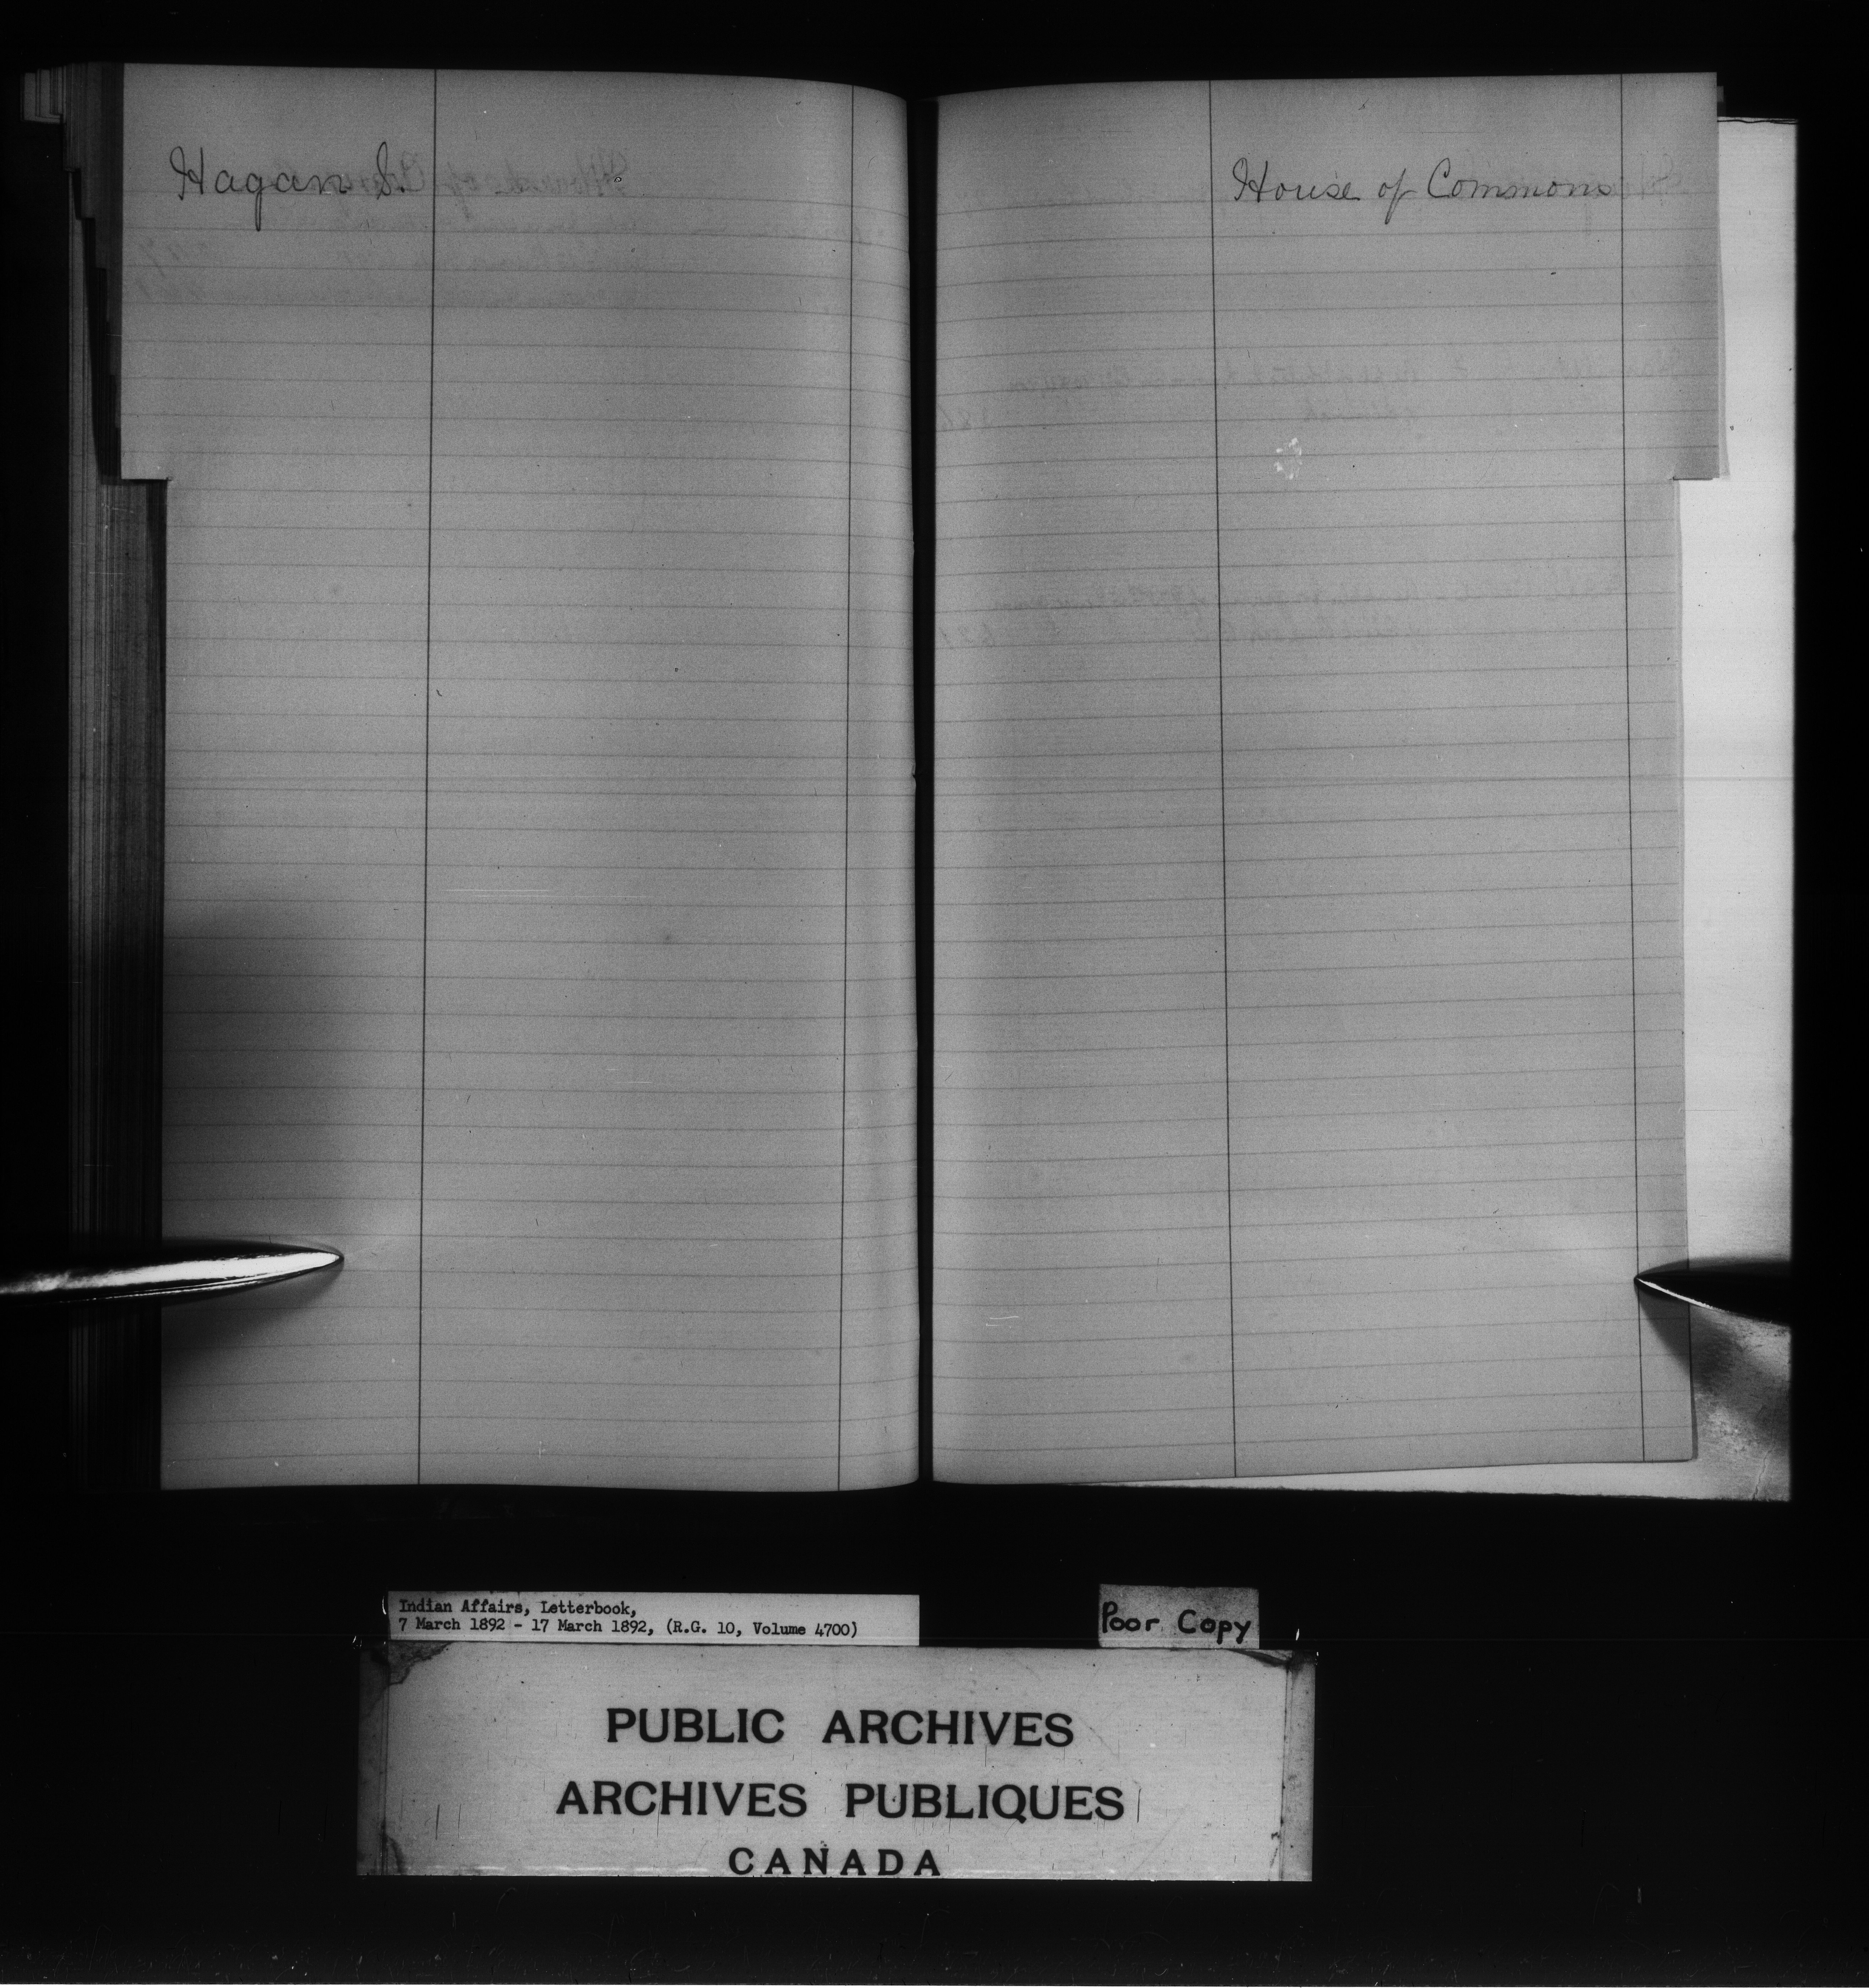 Hagan S.
House of Commons
Indian Affairs, Letterbook,
7 March 1892 - 17 March 1892, (R.G. 10, Volume 4700)
Poor Copy
PUBLIC ARCHIVES
ARCHIVES PUBLIQUES
CANADA